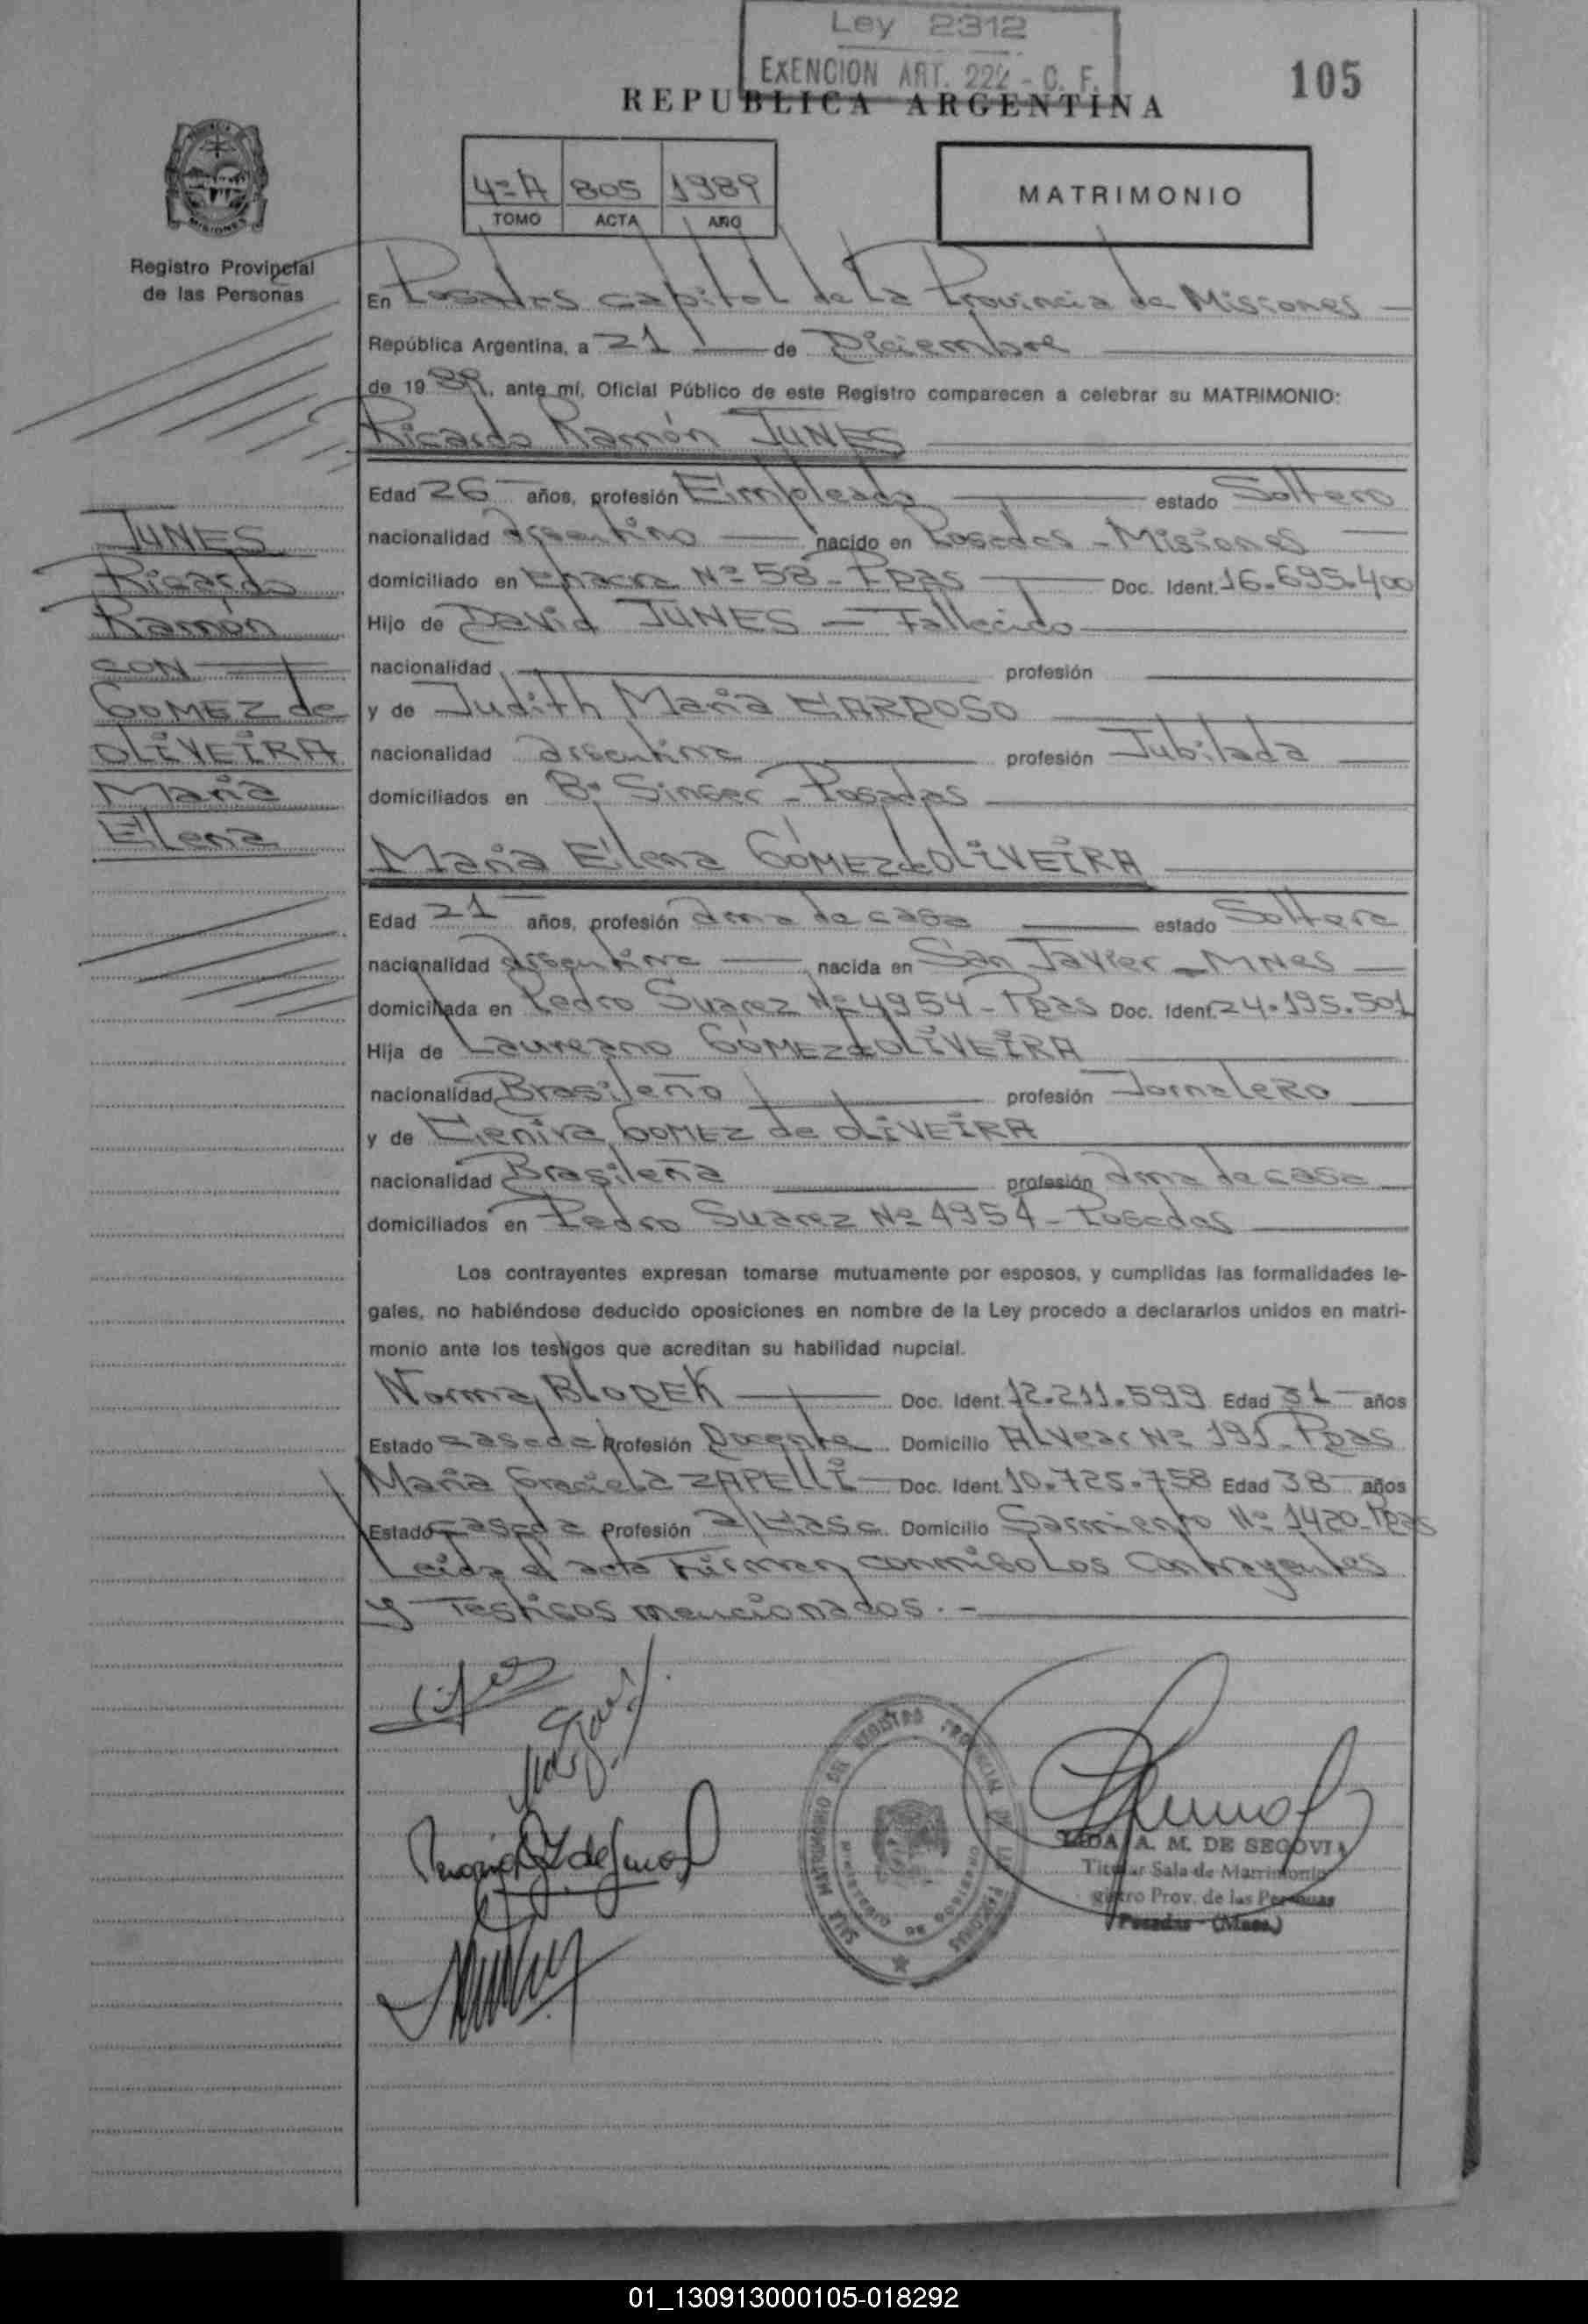 Ley 2312
EXENCION ART. 222 - C. F.
105
REPUBLICA ARGENTINA
4º A 805 1989
TOMO ACTA AÑO
MATRIMONIO
MISIONES
Registro Provincial
de las Personas
En Posadas capital de La Provincia de Misiones
República Argentina, a 21 de Diciembre
de 1989, ante mí, Oficial Público de este Registro comparecen a celebrar su MATRIMONIO:
Ricardo Ramón JUNES
Edad 26 años, profesión Empleado estado Soltero
JUNES
nacionalidad argentino nacido en Posadas - Misiones
Ricardo
domiciliado en Chacra Nº 58 - Ppas Doc. Ident. 16.695.400
Ramón
Hijo de David JUNES - Fallecido
CON
nacionalidad profesión
GOMEZ de
y de Judith María CARDOSO
OLIVEIRA
nacionalidad argentina profesión Jubilada
María
domiciliados en Bº Singer - Posadas
Elena
María Elena GÓMEZ de OLIVEIRA
Edad 21 años, profesión ama de casa estado Soltera
nacionalidad argentina nacida en San Javier - MNes
domiciliada en Pedro Suarez Nº 4954 - Ppas Doc. Ident. 24.195.501
Hija de Laureano GÓMEZ de OLIVEIRA
nacionalidad Brasileño profesión Jornalero
y de GOMEZ de OLIVEIRA
nacionalidad Brasileña profesión ama de casa
domiciliados en Pedro Suarez Nº 4954 - Posadas
Los contrayentes expresan tomarse mutuamente por esposos, y cumplidas las formalidades le-
gales, no habiéndose deducido oposiciones en nombre de la Ley procedo a declararlos unidos en matri-
monio ante los testigos que acreditan su habilidad nupcial.
Norma BLODEK Doc. Ident. 12.211.599 Edad 31 años
Estado casada Profesión Docente Domicilio Alvear Nº 191 - Ppas
María Graciela ZAPELLI Doc. Ident. 10.725.758 Edad 38 años
Estado casada Profesión Domicilio Sarmiento Nº 1420 - Ppas
Leída el acta Firman conmigo Los Contrayentes
y Testigos mencionados. -
SALA MATRIMONIO DEL REGISTRO PROVINCIAL DE LAS PERSONAS
A. M. DE SEGOVIA
Titular Sala de Matrimonio
Prov. de las Personas
Posadas - (Mnes.)
01_130913000105-018292